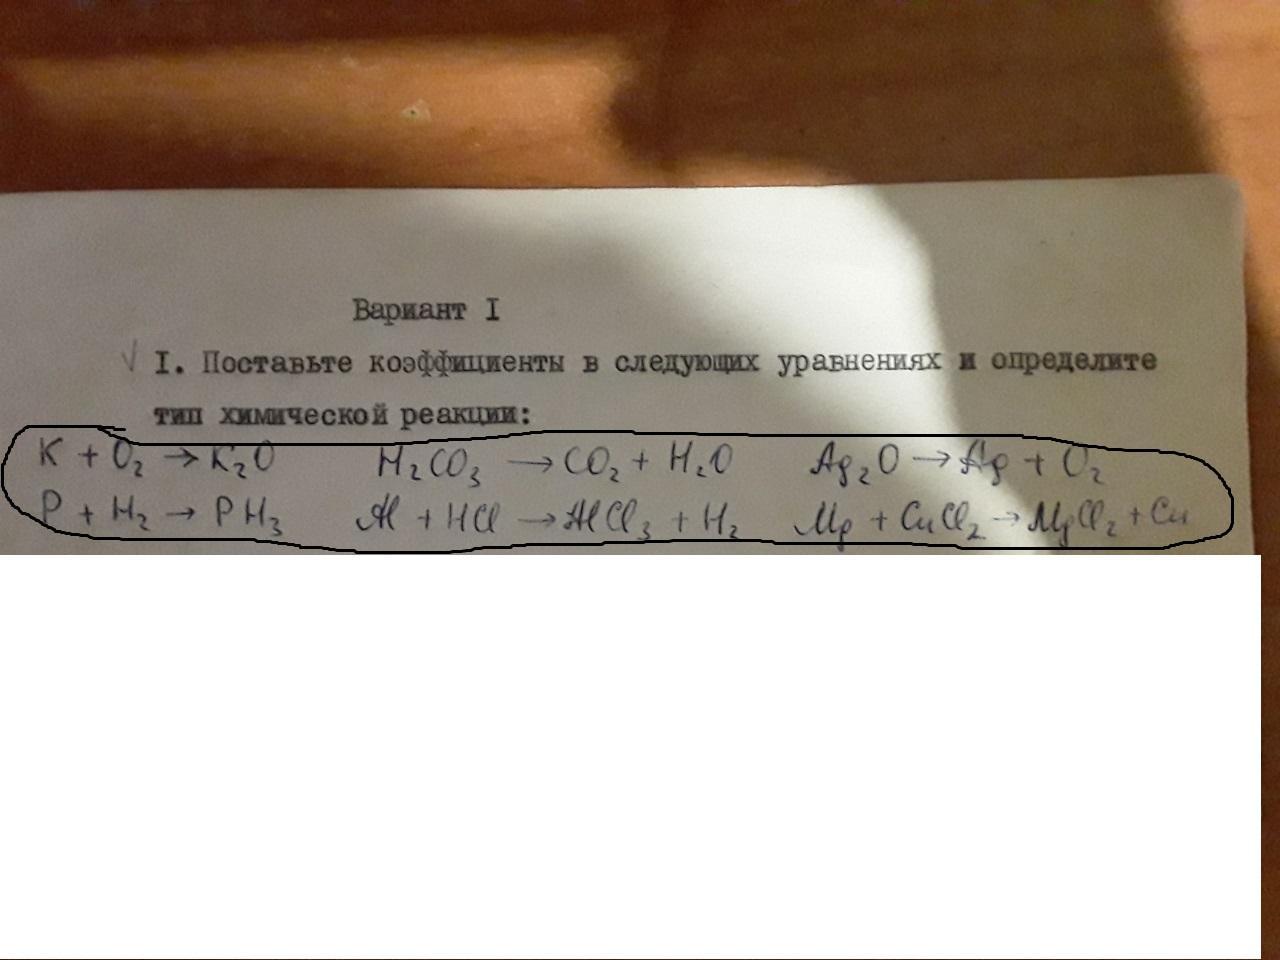 Вариант I
√ I. Поставьте коэффициенты в следующих уравнениях и определите
тип химической реакции:
K + O₂ → K₂O H₂CO₃ → CO₂ + H₂O Ag₂O → Ag + O₂
P + H₂ → PH₃ Al + HCl → AlCl₃ + H₂ Mg + CuCl₂ → MgCl₂ + Cu